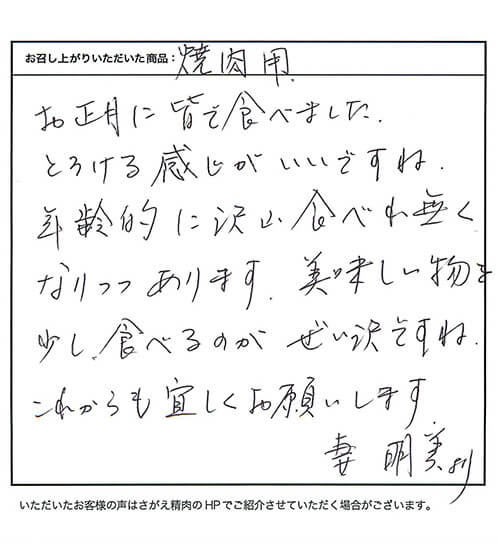 お召し上がりいただいた商品：焼肉用
お正月に皆で食べました.
とろける感じがいいですね.
年齢的に沢山食べれ無く
なりつつあります. 美味しい物を
少し食べるのがぜい沢ですね.
これからも宜しくお願いします
妻 明美より
いただいたお客様の声はさがえ精肉のHPでご紹介させていただく場合がございます。